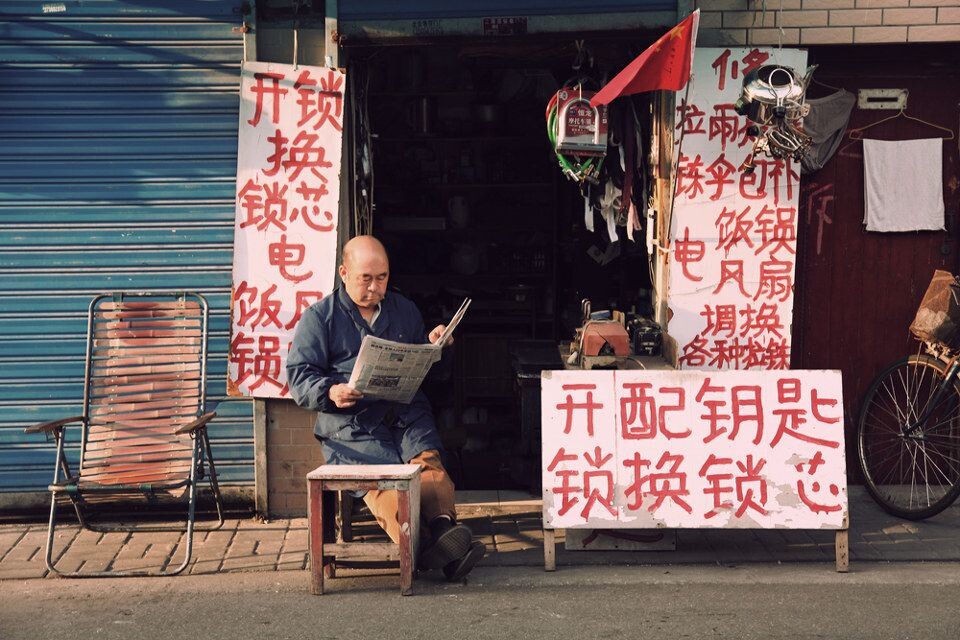 开锁
换
锁芯
电
饭风
锅
修
拉雨
伞包补
饭锅
电
风扇
调换
各种拉
摩托车锁
开配钥匙
锁换锁芯